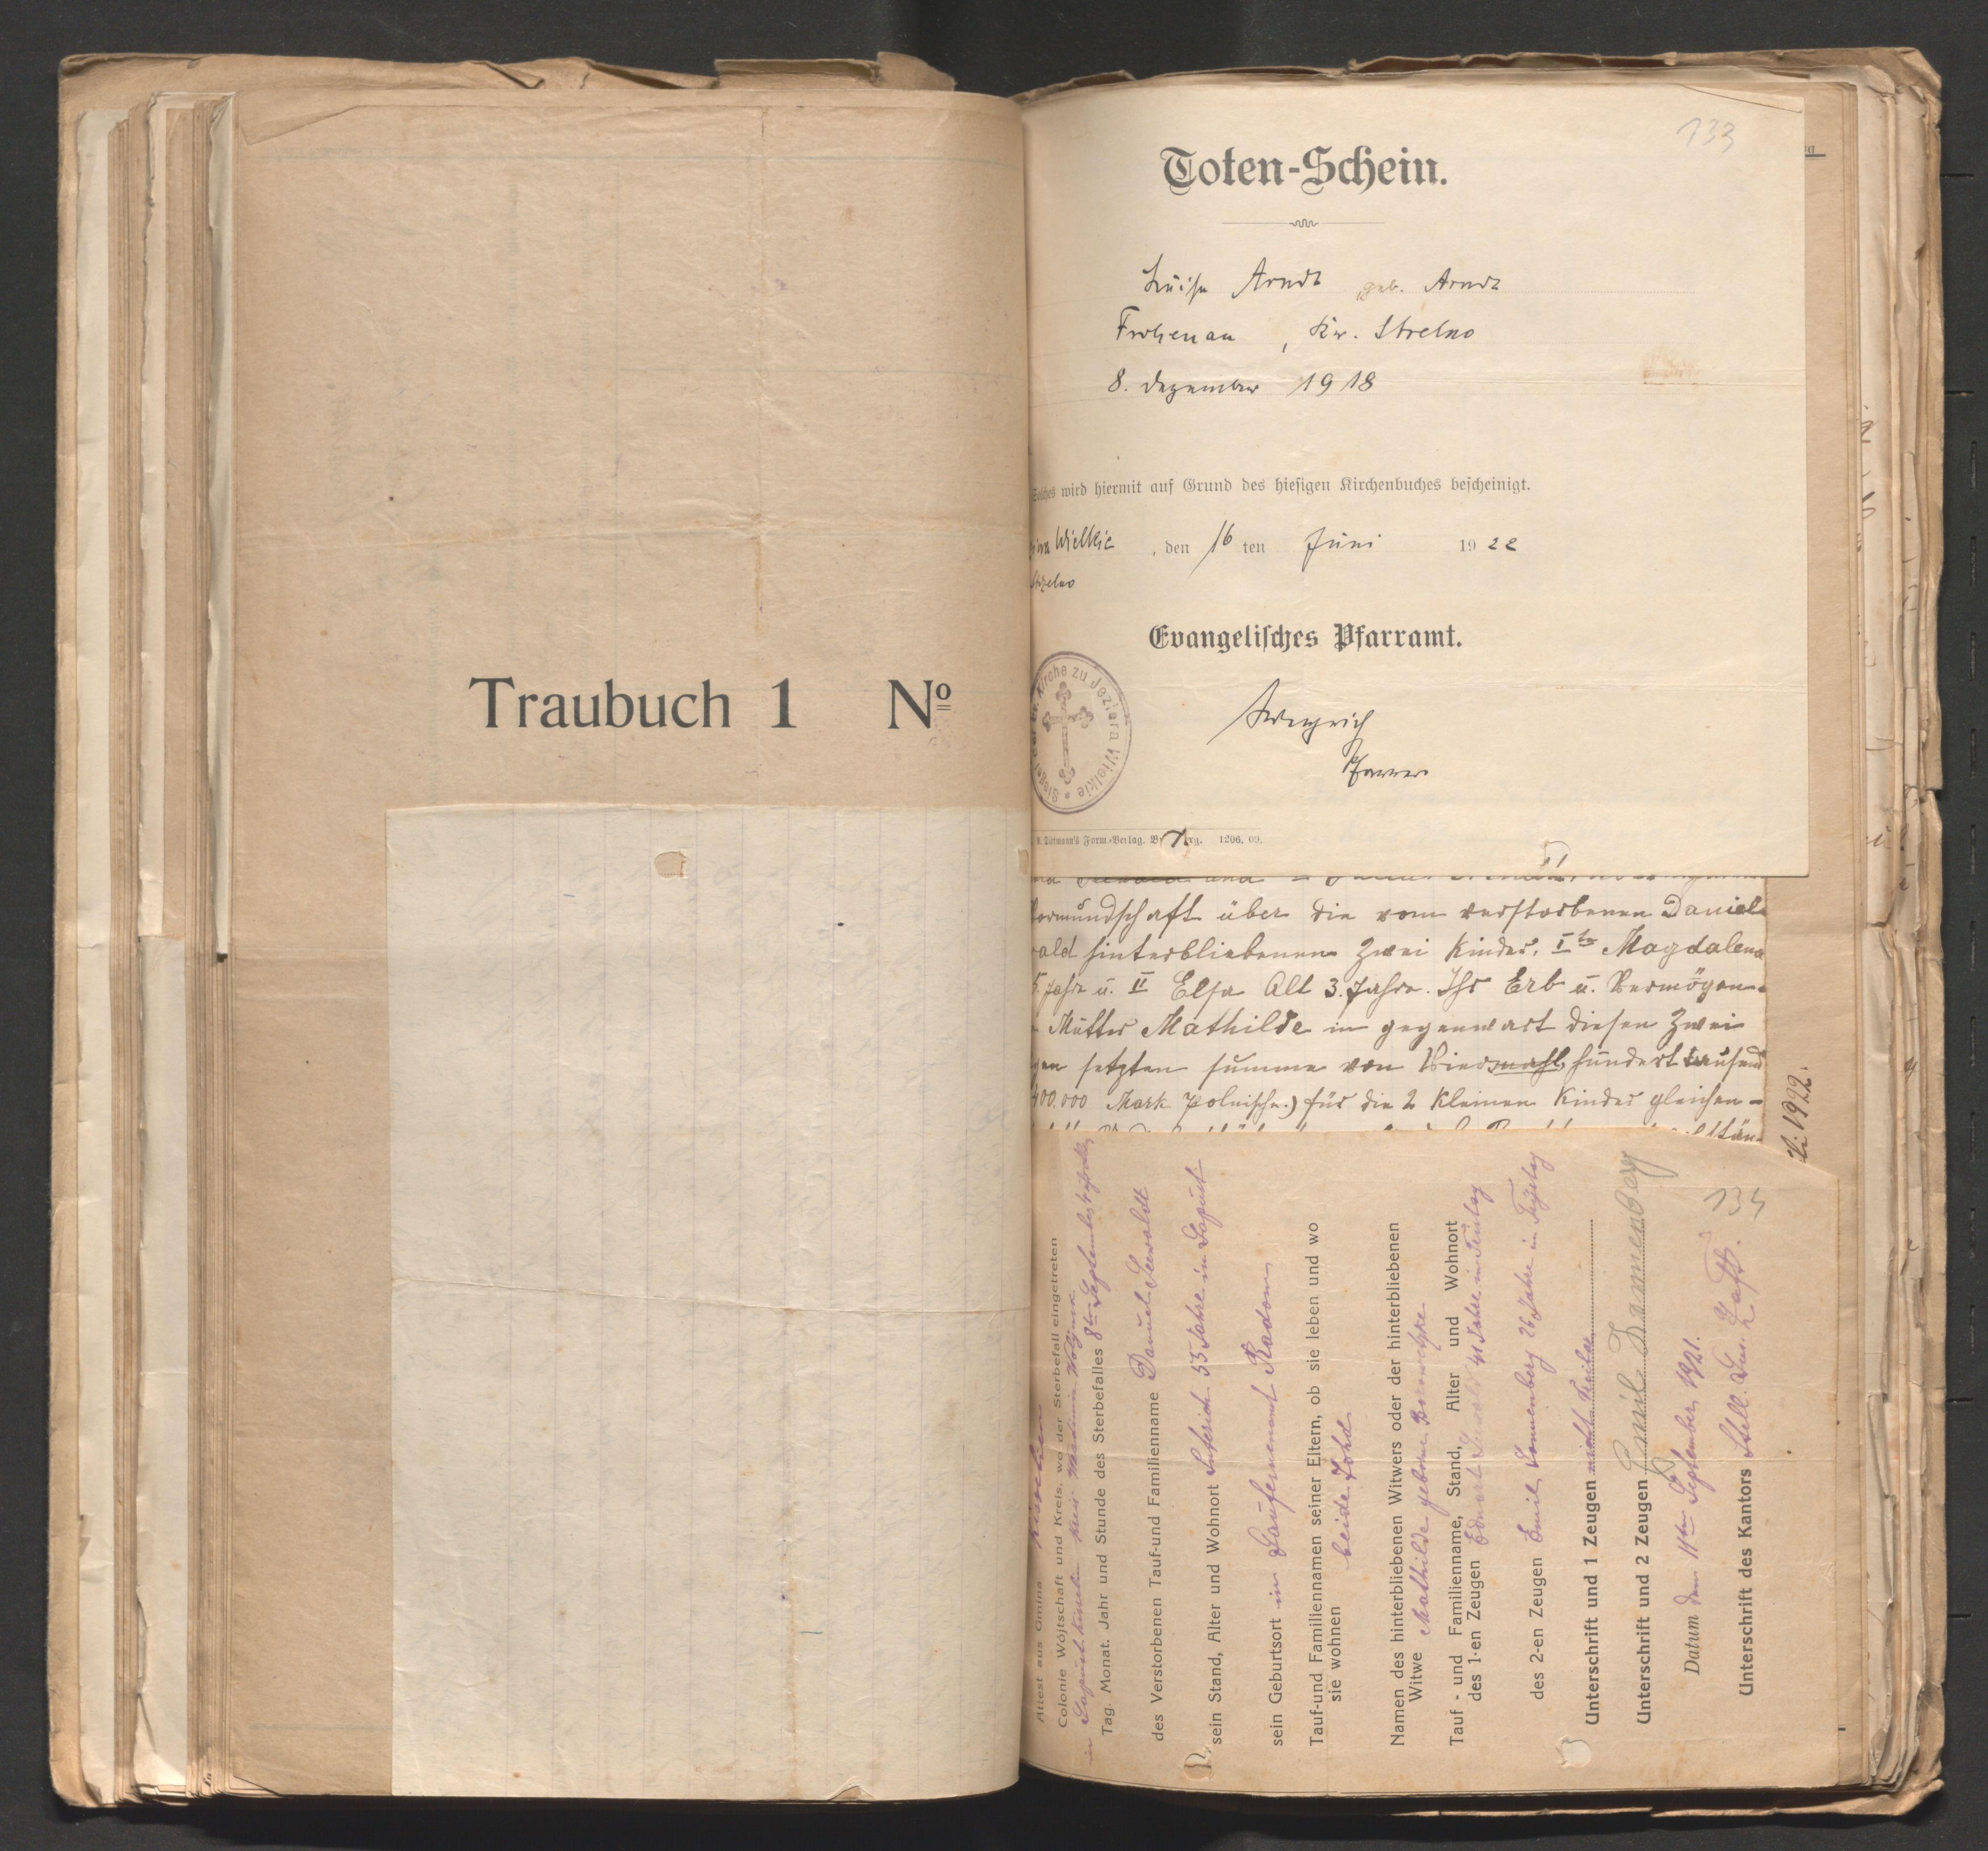 Traubuch 1 Nº
133
Toten-Schein.
Luise Arndt geb. Arndt
Frohenau, Kr. Strelno
8. Dezember 1918
Solches wird hiermit auf Grund des hiesigen Kirchenbuches bescheinigt.
Wielkie, den 16 ten Juni 1922
Strzelno
Evangelisches Pfarramt.
Siegel der ev. Kirche zu Jeziora Wielkie
Pfarrer
Form.-Verlag. 1206. 09.
Vormundschaft über die vom verstorbenen Daniel
wald hinterbliebenen zwei Kinder. I te Magdalena
5. Jahre u. II Elsa Alt 3. Jahre. Ihr Erb u. Vermögen
Mutter Mathilde in gegenwart diesen zwei
gen setzten summe von Viermahl hundert tausend
400.000 Mark polnische.) für die 2 Kleinen Kinder gleichen-
1922.
134
Attest aus Gmina Kisielin
Colonie Wojtschaft und Kreis, wo der Sterbefall eingetreten
Tag. Monat. Jahr und Stunde des Sterbefalles 8ten September
des Verstorbenen Tauf-und Familienname Daniel Seewaldt
sein Stand, Alter und Wohnort 53 Jahre in
sein Geburtsort in Radom
Tauf-und Familiennamen seiner Eltern, ob sie leben und wo
sie wohnen beide Todt
Namen des hinterbliebenen Witwers oder der hinterbliebenen
Witwe Mathilde geborne
Tauf - und Familienname, Stand, Alter und Wohnort
des 1-en Zeugen Eduart Seewald 41 Jahre in
des 2-en Zeugen Emil Sonnenberg 26 Jahre in
Unterschrift und 1 Zeugen
Unterschrift und 2 Zeugen Emil Sonnenberg
Datum den 11ten September 1921.
Unterschrift des Kantors Stell.